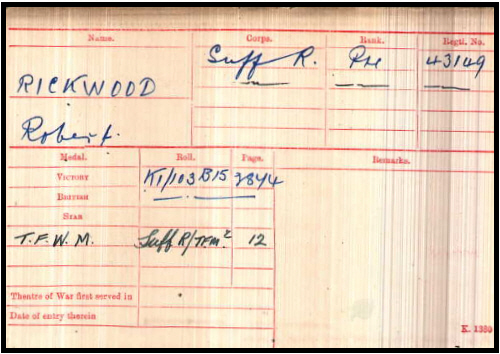 Name. Corps. Rank. Regtl. No.
Suff R. Pte 43149
RICKWOOD
Robert.
Medal. Roll. Page. Remarks.
VICTORY K1/103 B15 3844
BRITISH
STAR
T.F.W.M. Suff R/TFM 2 12
Theatre of War first served in
Date of entry therein
K. 1380